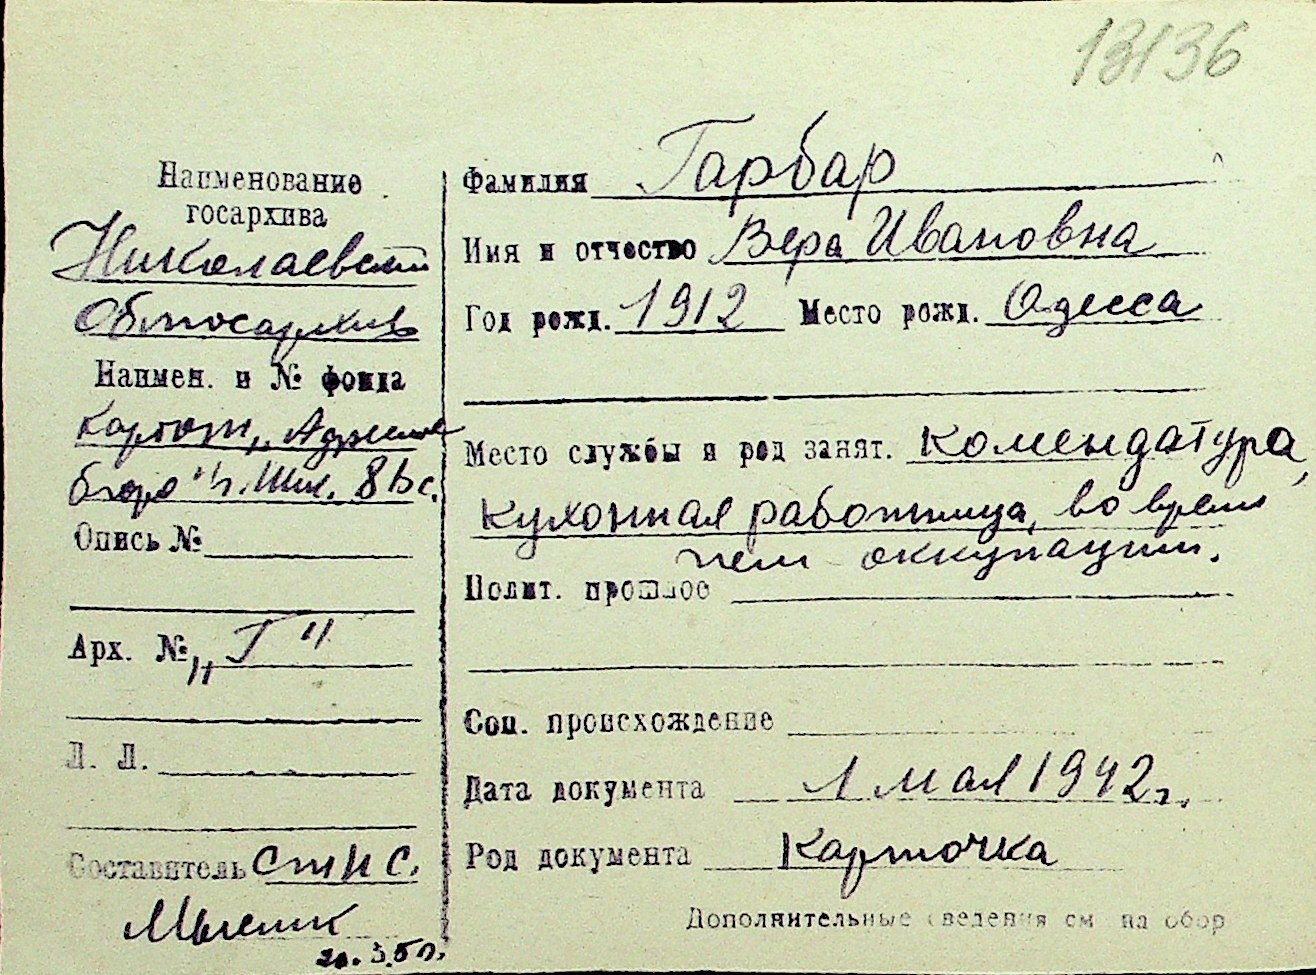 13136
Наименование
госархива
Николаевский
Облгосархив
Наимен. и № фонда
Картот. "Адресное
бюро" г.
Опись №
Арх. № "Г"
Л. Л.
Составитель ст н с.
20.3.50.
Фамилия Гарбар
Имя и отчество Вера Ивановна
Год рожд. 1912 Место рожд. Одесса
Место службы и род занят. Комендатура,
кухонная работница, во время
нем оккупации.
Полит. прошлое
Соц. происхождение
Дата документа 1 мая 1942 г.
Род документа Карточка
Дополнительные сведения см на обор